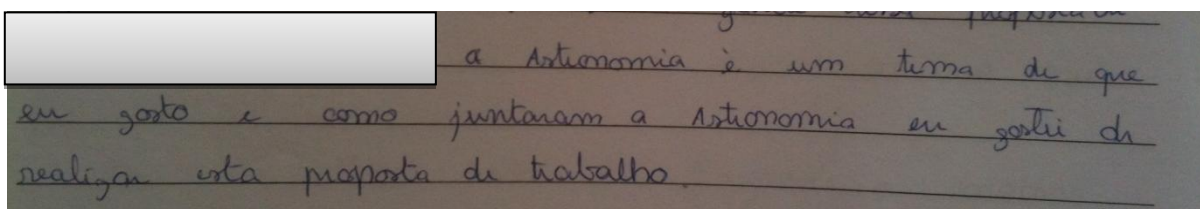 a Astronomia è um tema de que
eu gosto e como juntaram a Astronomia eu gostei de
realizar esta proposta de trabalho.